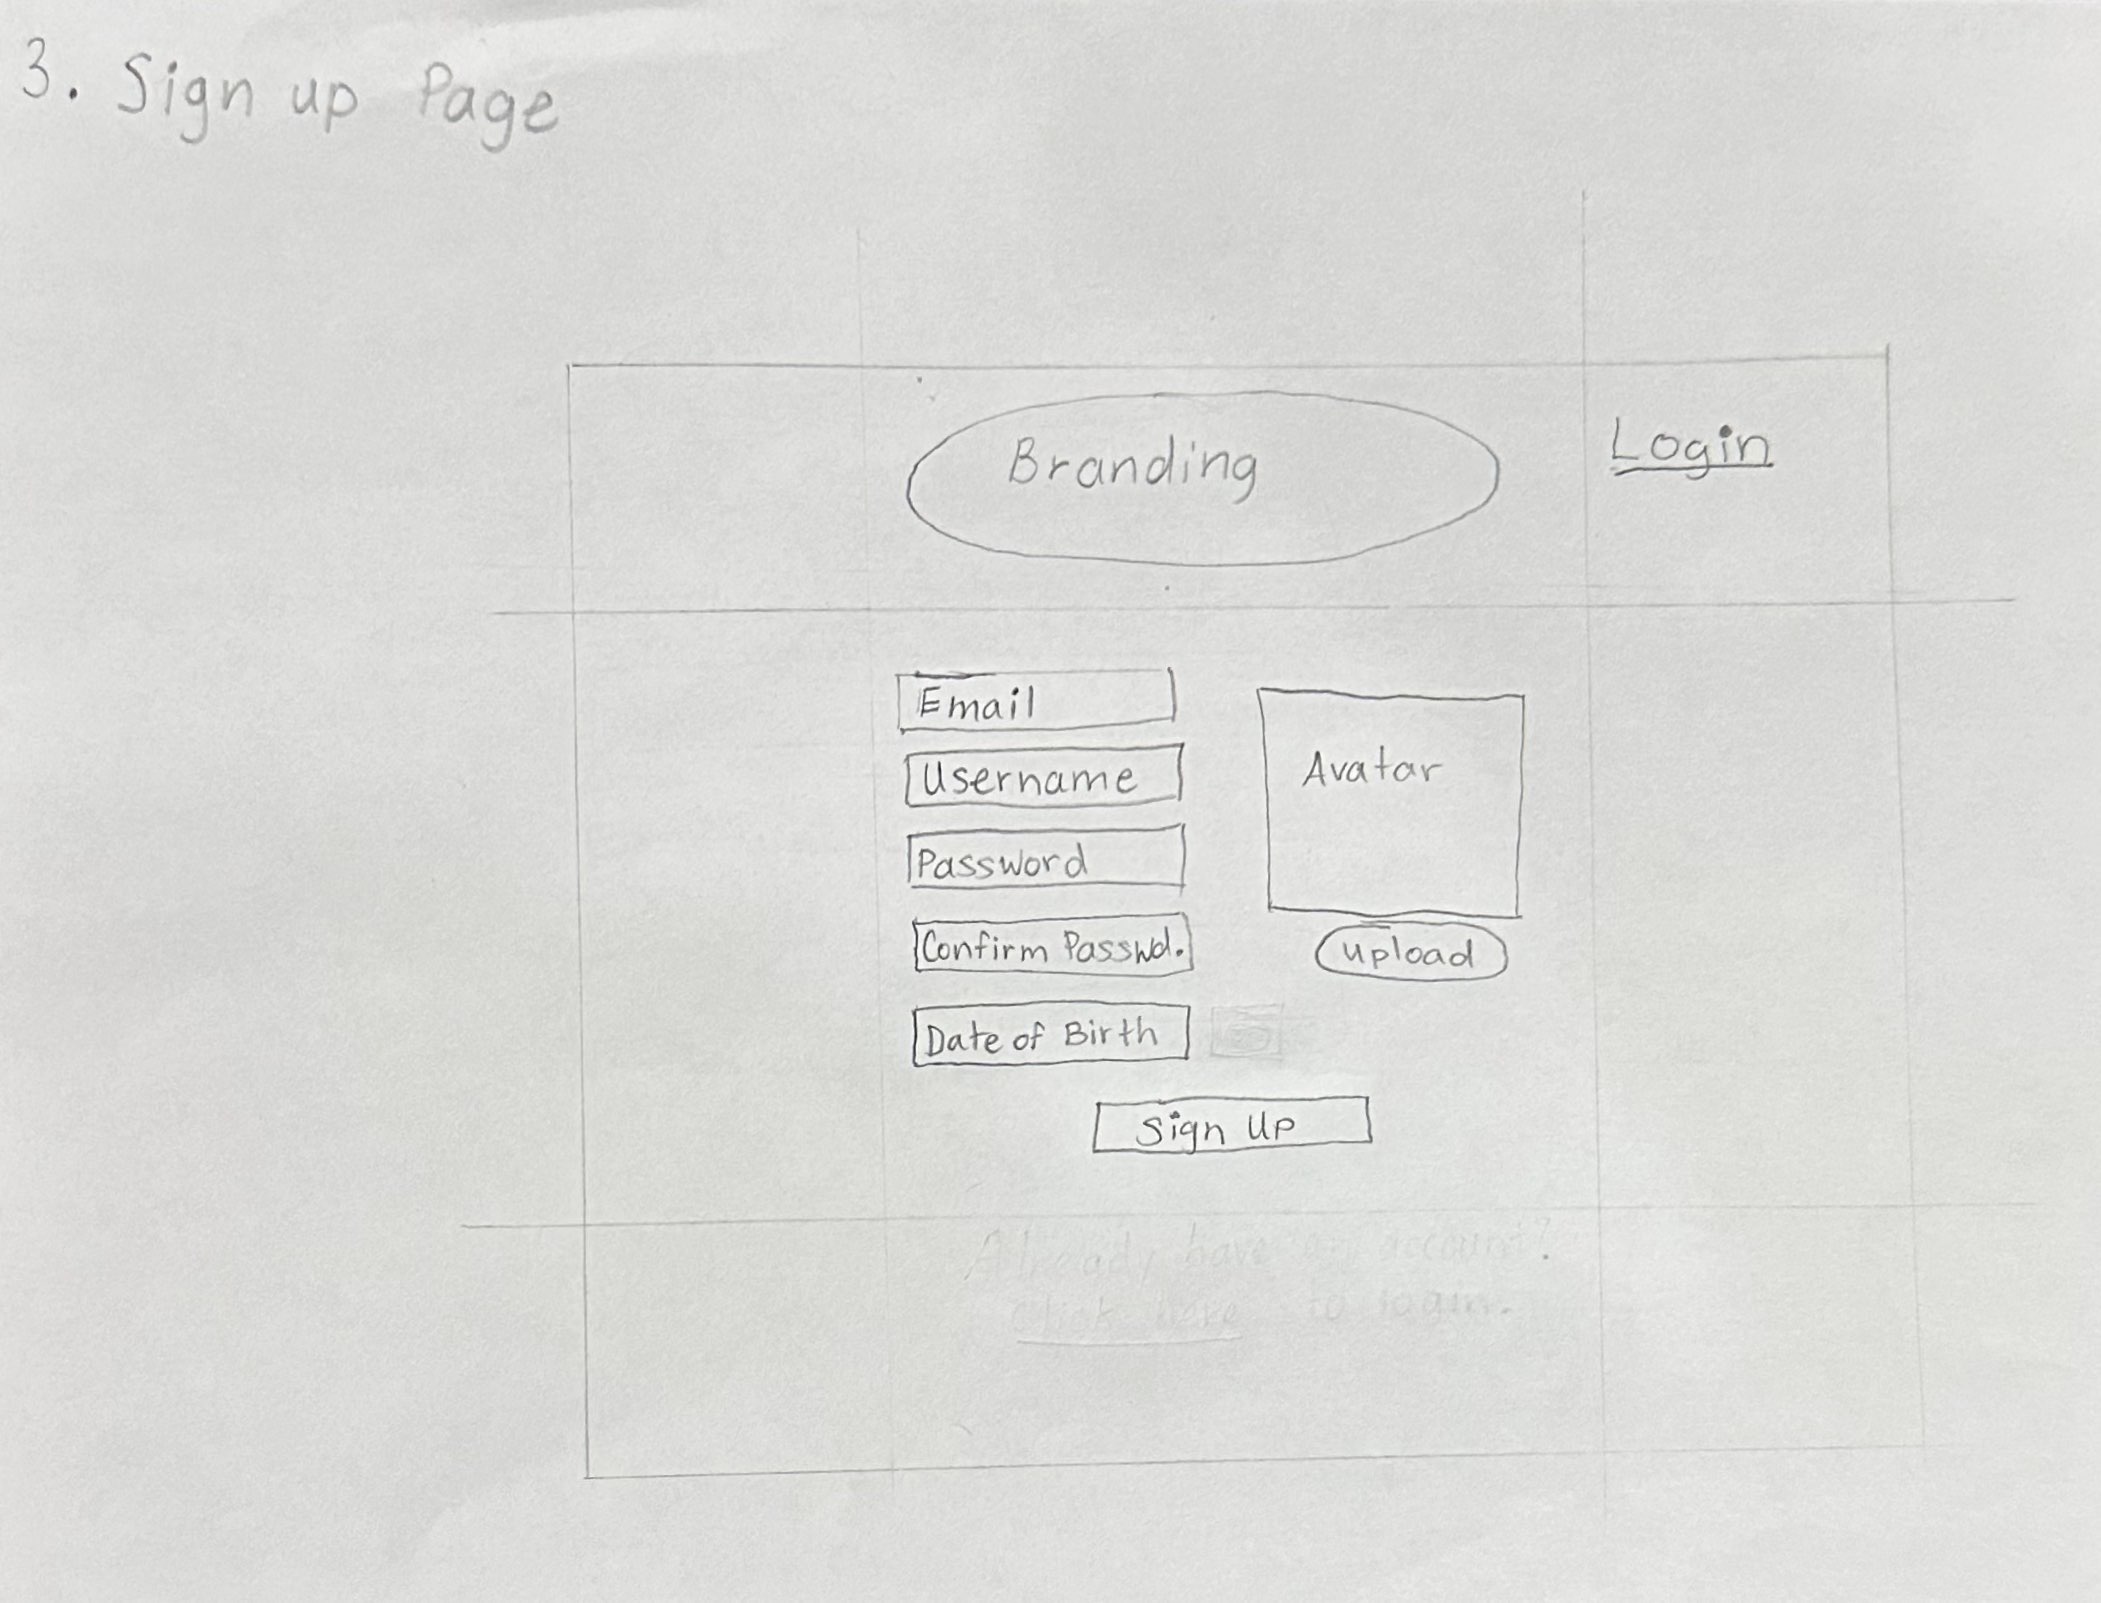 3. Sign up Page
Branding
Login
Email
Username
Password
Confirm Passwd.
Date of Birth
Avatar
upload
Sign Up
Already have an account?
Click here to login.